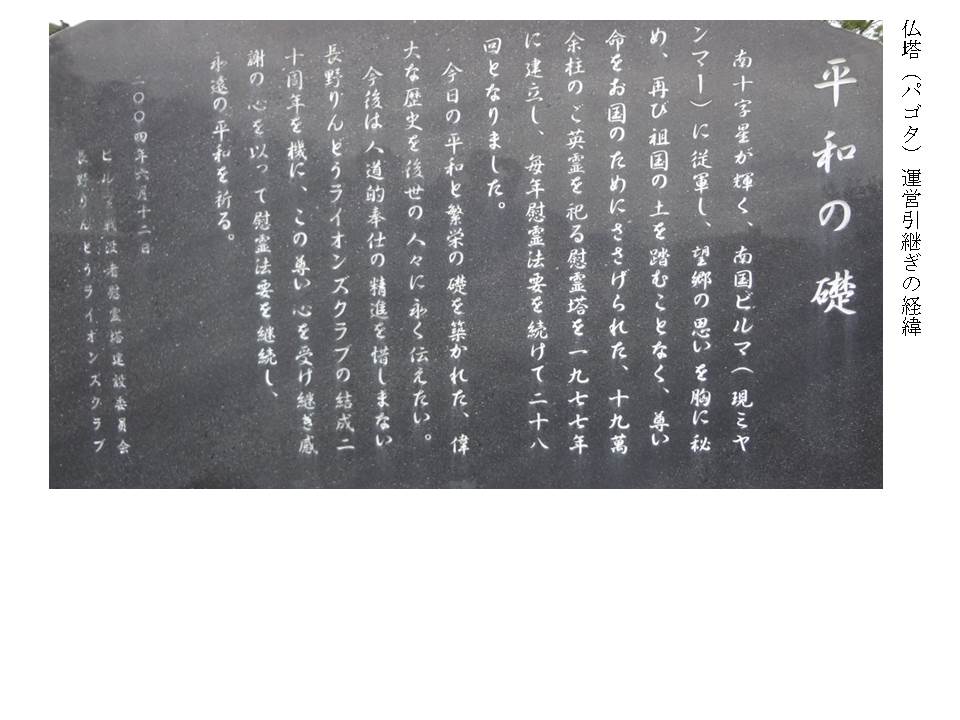 仏塔（パゴタ）　運営引継ぎの経緯
平和の礎
南十字星が輝く、南国ビルマ（現ミヤ
ンマー）に従軍し、望郷の思いを胸に秘
め、再び祖国の土を踏むことなく、尊い
命をお国のためにささげられた、十九萬
余柱のご英霊を祀る慰霊塔を一九七七年
に建立し、毎年慰霊法要を続けて二十八
回となりました。
今日の平和と繁栄の礎を築かれた、偉
大な歴史を後世の人々に永く伝えたい。
今後は人道的奉仕の精進を惜しまない
長野りんどうライオンズクラブの結成二
十周年を機に、この尊い心を受け継ぎ感
謝の心を以って慰霊法要を継続し、
永遠の平和を祈る。
二〇〇四年六月十二日
ビルマ戦没者慰霊塔建設委員会
長野りんどうライオンズクラブ